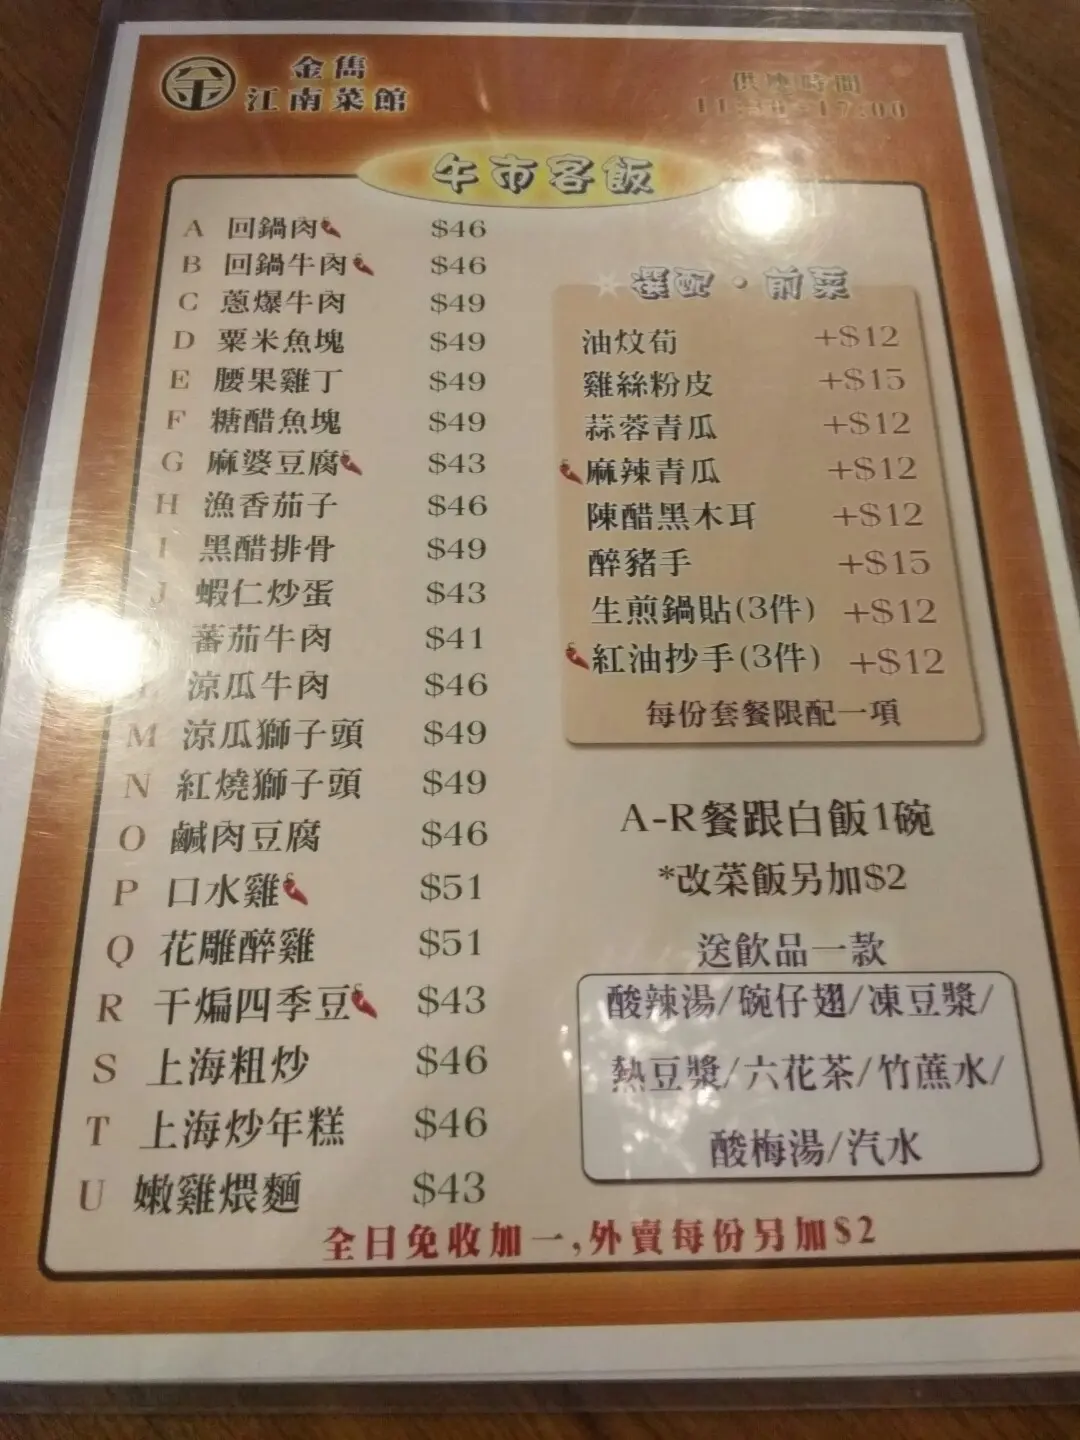 金雋
江南菜館
供應時間
11:30-17:00
午市客飯
A 回鍋肉 $46
B 回鍋牛肉 $46
C 蔥爆牛肉 $49
D 粟米魚塊 $49
E 腰果雞丁 $49
F 糖醋魚塊 $49
G 麻婆豆腐 $43
H 漁香茄子 $46
I 黑醋排骨 $49
J 蝦仁炒蛋 $43
蕃茄牛肉 $41
L 涼瓜牛肉 $46
M 涼瓜獅子頭 $49
N 紅燒獅子頭 $49
O 鹹肉豆腐 $46
P 口水雞 $51
Q 花雕醉雞 $51
R 干煸四季豆 $43
S 上海粗炒 $46
T 上海炒年糕 $46
U 嫩雞煨麵 $43
選配·前菜
油炆荀 +$12
雞絲粉皮 +$15
蒜蓉青瓜 +$12
麻辣青瓜 +$12
陳醋黑木耳 +$12
醉豬手 +$15
生煎鍋貼(3件) +$12
紅油抄手(3件) +$12
每份套餐限配一項
A-R餐跟白飯1碗
*改菜飯另加$2
送飲品一款
酸辣湯/碗仔翅/凍豆漿/
熱豆漿/六花茶/竹蔗水/
酸梅湯/汽水
全日免收加一,外賣每份另加$2